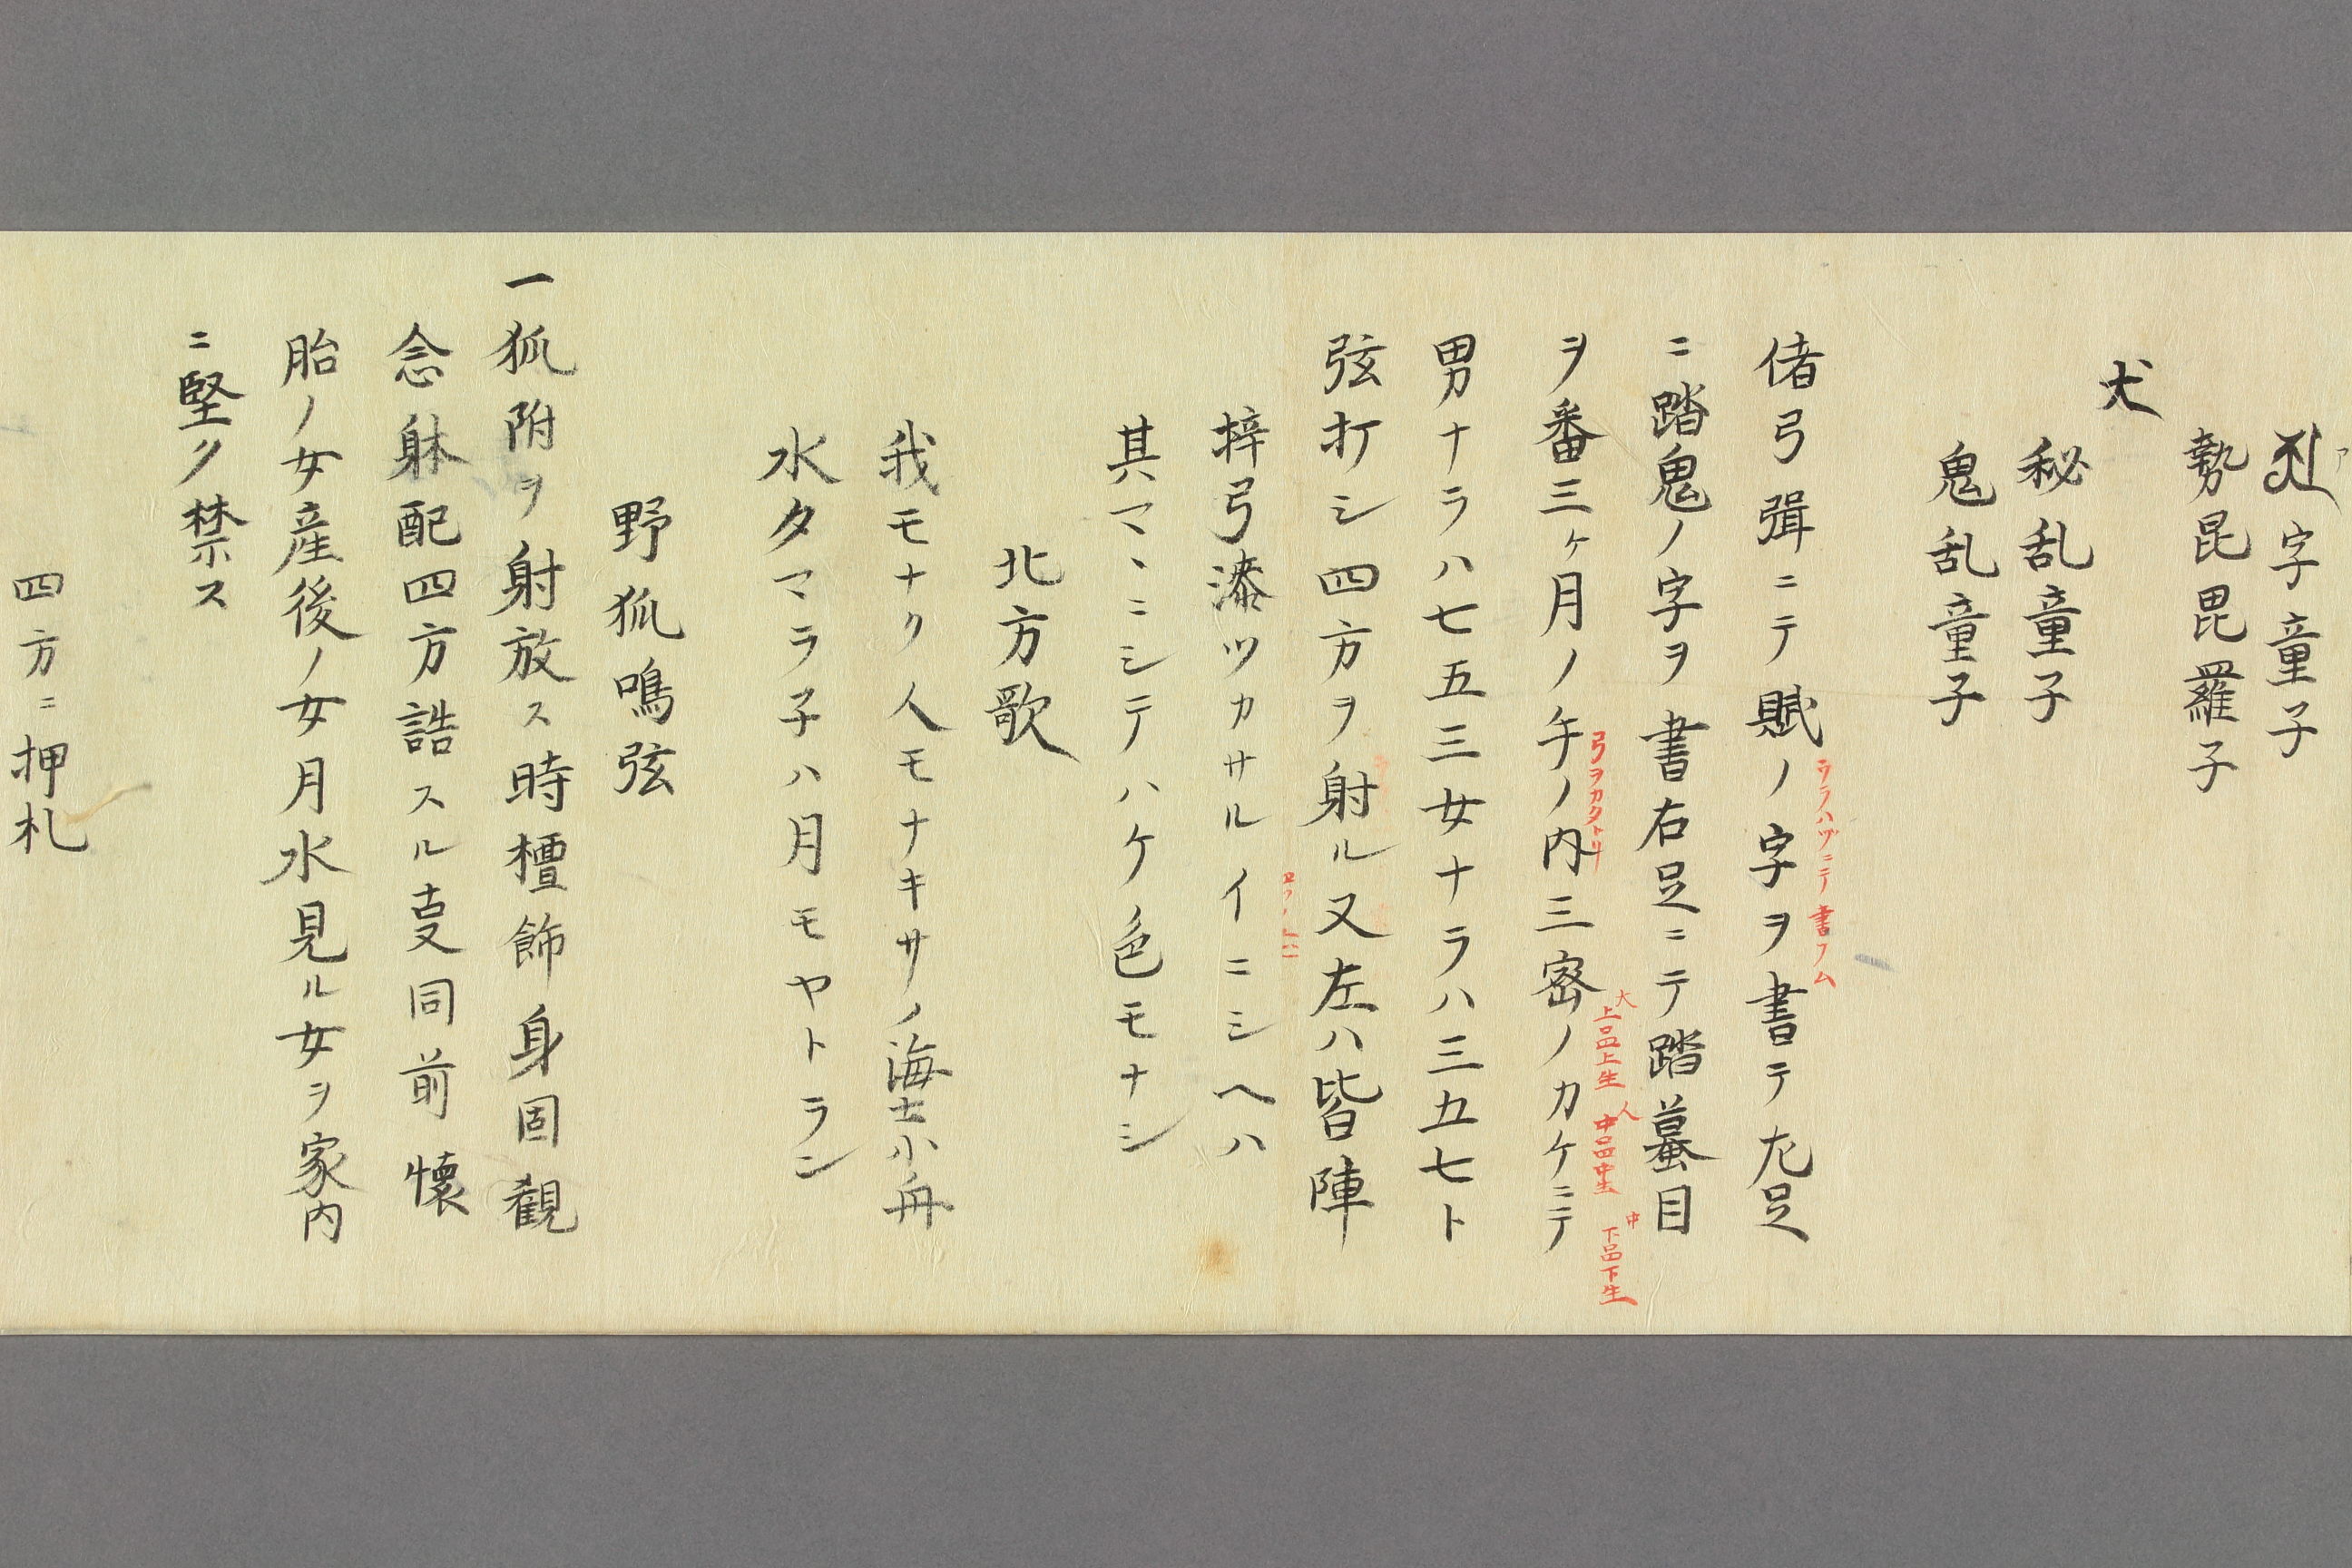 字童子
勢昆毘羅子
犬
秘乱童子
鬼乱童子
偖弓弭ニテ賦ノ字ヲ書テ左足
ウラハヅニテ書フム
ニ踏鬼ノ字ヲ書右足ニテ踏蟇目
ヲ番三ヶ月ノ午ノ内三密ノカケニテ
弓ヲカクトリ
大上品上生 人中品中生 中下品下生
男ナラハ七五三女ナラハ三五七ト
弦打シ四方ヲ射ル又左ハ皆陣
梓弓漆ツカサルイニシヘハ
其マヽニシテハケ色モナシ
北方歌
我モナク人モナキサノ海士小舟
水タマラ子ハ月モヤトラン
野狐鳴弦
一狐附ヲ射放ス時檀飾身固観
念躰配四方誥スル㕝同前懐
胎ノ女産後ノ女月水見ル女ヲ家内
ニ堅ク禁ス
四方ニ押札